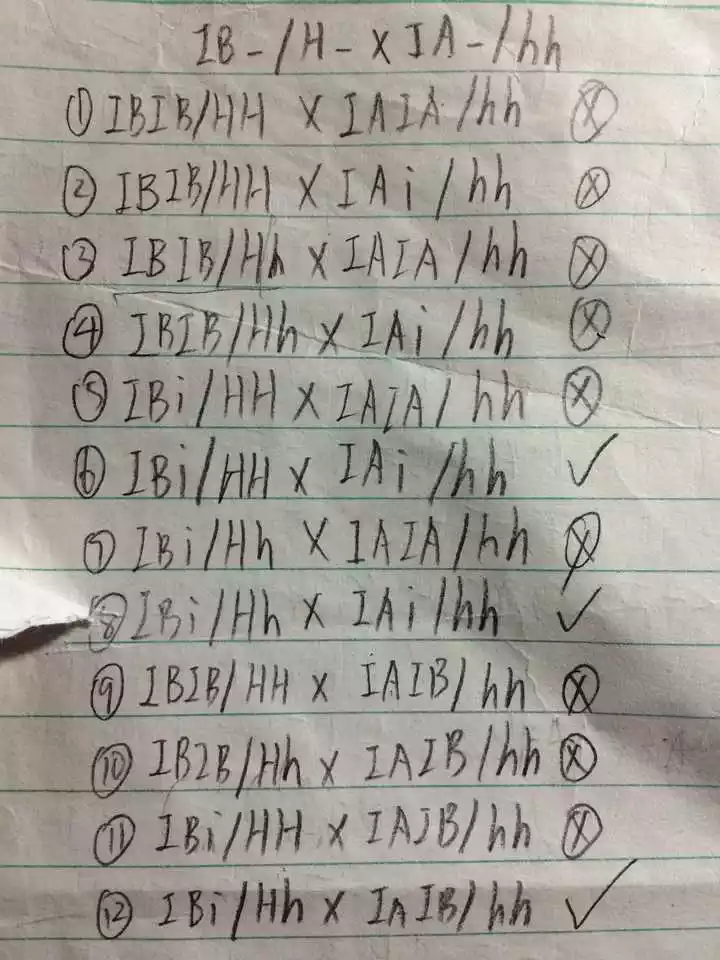 IB-/H- x IA-/hh
① IBIB/HH x IAIA/hh ⓧ
② IBIB/HH x IAi/hh ⓧ
③ IBIB/Hh x IAIA/hh ⓧ
④ IBIB/Hh x IAi/hh ⓧ
⑤ IBi/HH x IAIA/hh ⓧ
⑥ IBi/HH x IAi/hh ✓
⑦ IBi/Hh x IAIA/hh ⓧ
⑧ IBi/Hh x IAi/hh ✓
⑨ IBIB/HH x IAIB/hh ⓧ
⑩ IBIB/Hh x IAIB/hh ⓧ
⑪ IBi/HH x IAIB/hh ⓧ
⑫ IBi/Hh x IAIB/hh ✓